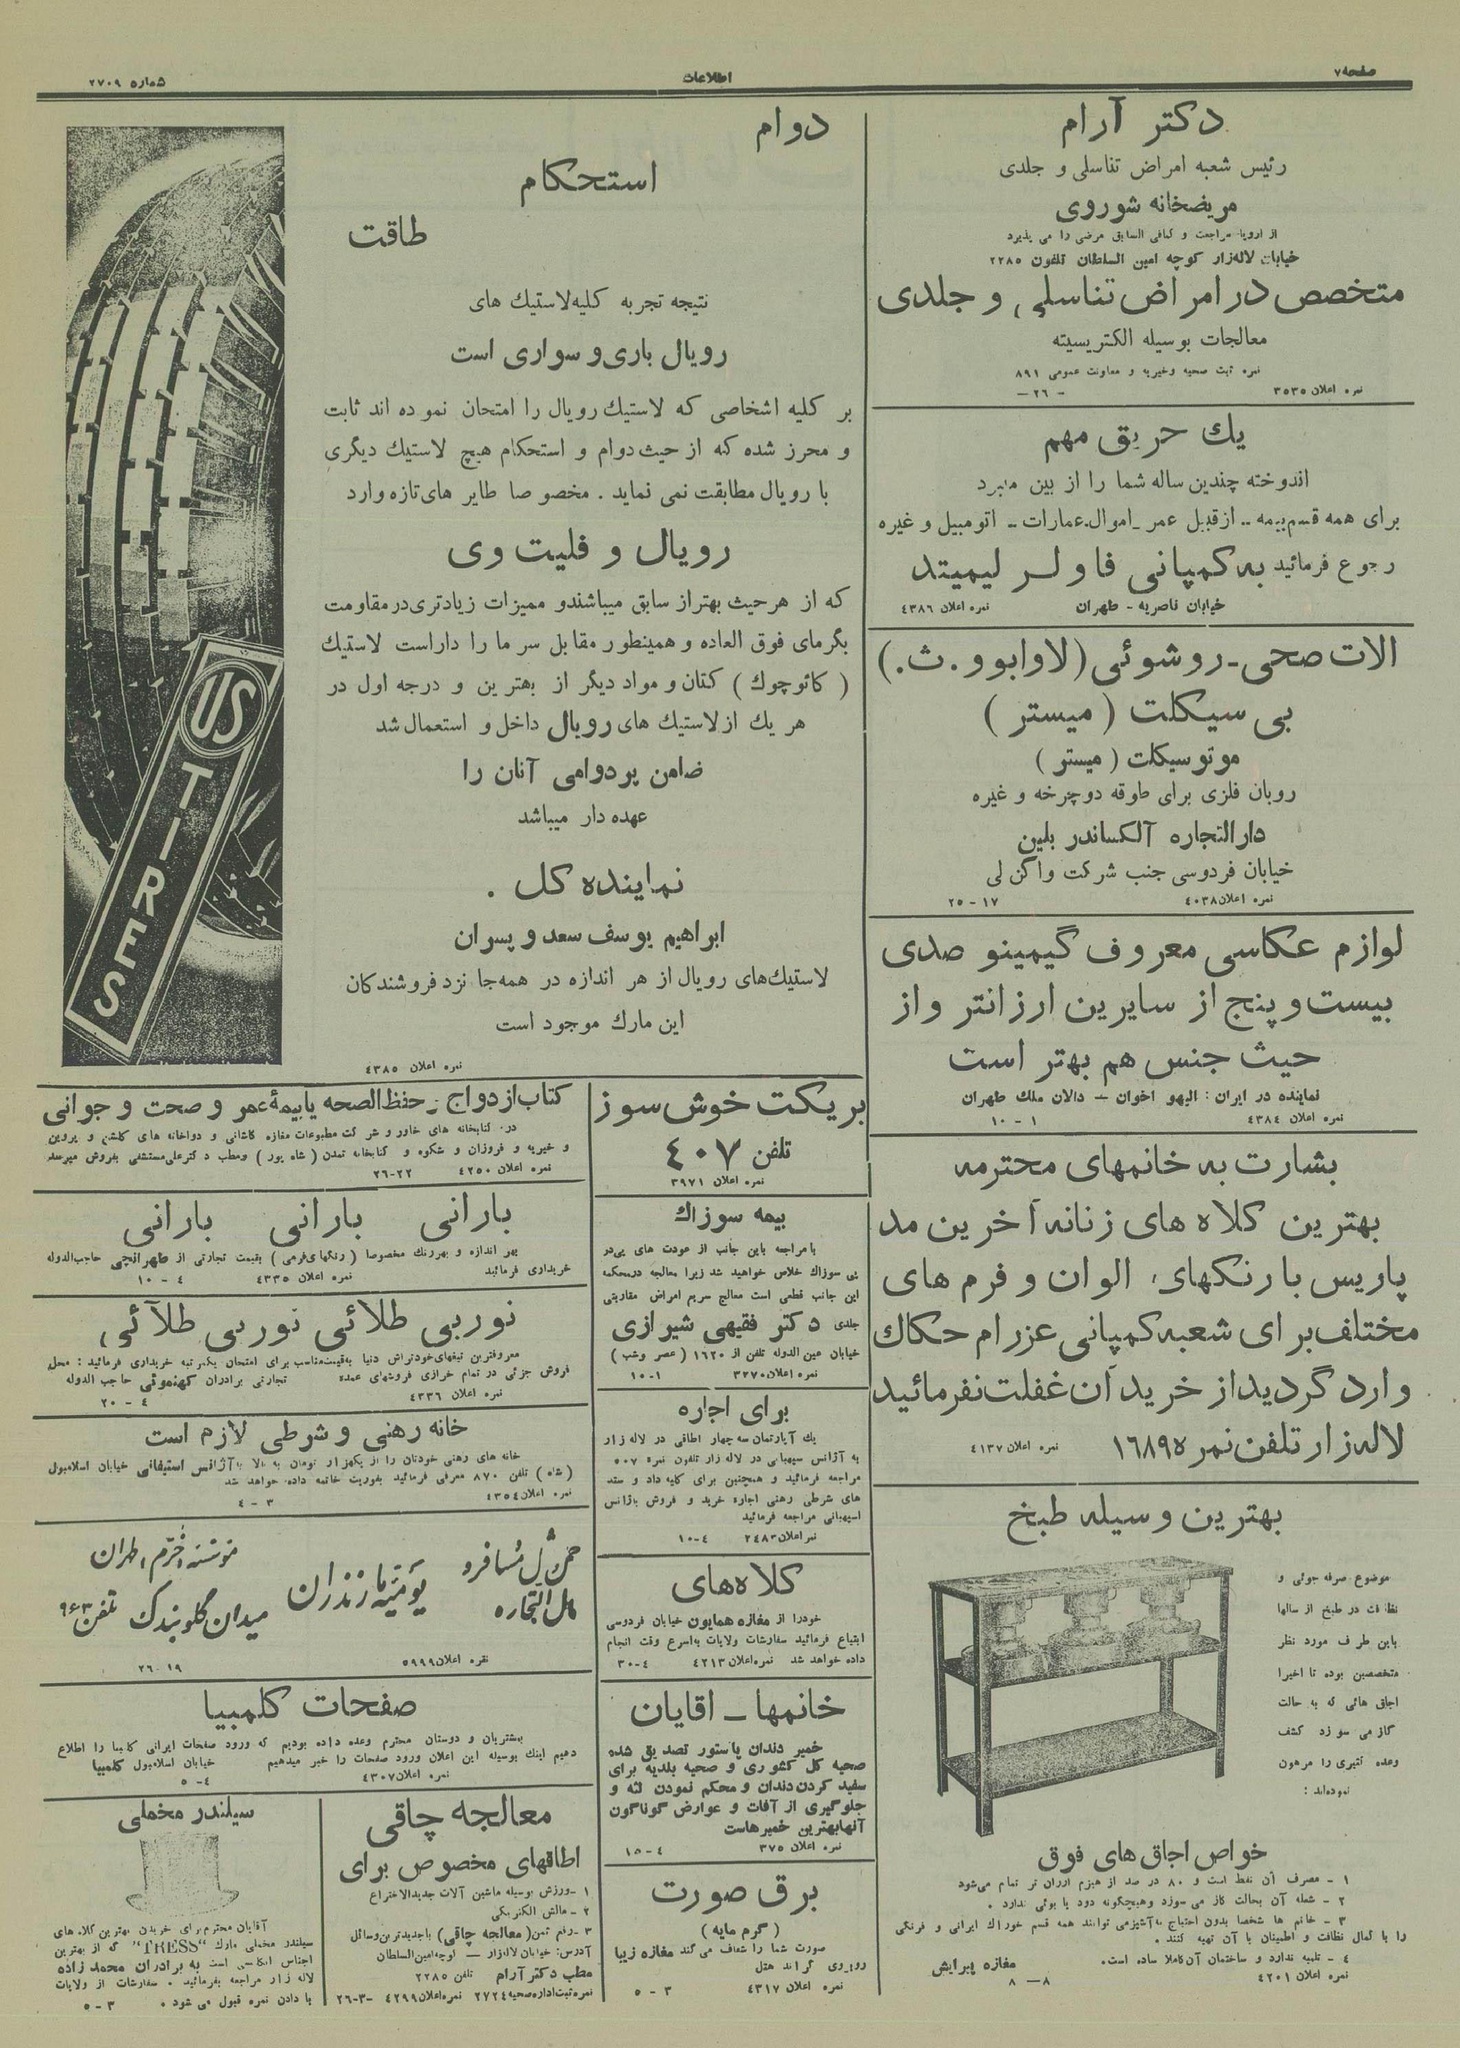 صفحه ۷
اطلاعات
شماره ۲۷۰۹
دکتر آرام
رئیس شعبه امراض تناسلی و جلدی
مریضخانه شوروی
از اروپا مراجعت و کمافی السابق مرضی را می پذیرد
خیابان لاله‌زار کوچه امین السلطان تلفون ۲۲۸۵
متخصص در امراض تناسلی و جلدی
معالجات بوسیله الکتریسیته
نمره ثبت صحیه وخیریه و معاونت عمومی ۸۹۱
نمره اعلان ۳۵۳۵ - ۲۶ -
یك حریق مهم
اندوخته چندین ساله شما را از بین میبرد
برای همه قسم بیمه .. از قبیل عمر ـ اموال ـ عمارات .. اتومبیل و غیره
رجوع فرمائید به کمپانی فاولر لیمیتد
خیابان ناصریه - طهران نمره اعلان ۴۳۸۶
الات صحی - روشوئی (لاوابو و . ث .)
بی سیکلت ( میستر )
موتوسیکلت ( میستر )
روبان فلزی برای طوقه دوچرخه و غیره
دارالتجاره آلکساندر بلین
خیابان فردوسی جنب شرکت واگن لی
نمره اعلان ۴۰۳۸ ۱۷ - ۲۵
لوازم عکاسی معروف گیمینو صدی
بیست و پنج از سایرین ارزانتر و از
حیث جنس هم بهتر است
نماینده در ایران : الیهو اخوان - دالان ملك طهران
نمره اعلان ۴۳۸۴ ۱ - ۱۰
بشارت به خانمهای محترمه
بهترین کلاه های زنانه آخرین مد
پاریس با رنگهای الوان و فرم های
مختلف برای شعبه کمپانی عزرام حکاك
وارد گردید از خرید آن غفلت نفرمائید
لاله زار تلفن نمره ۱۶۸۹۵ نمره اعلان ۴۱۳۷
بهترین وسیله طبخ
موضوع صرفه جوئی و
نظافت در طبخ از سالها
باین طرف مورد نظر
متخصصین بوده تا اخیرا
اجاق هائی که به حالت
گاز می سوزد کشف
وعده کثیری را مرهون
نموده‌اند :
خواص اجاق های فوق
۱ - مصرف آن نفط است و ۸۰ در صد از هیزم ارزان تر تمام می‌شود
۲ - شعله آن بحالت گاز می سوزد وهیچگونه دود یا بوئی ندارد .
۳ - خانم ها شخصا بدون احتیاج به‌آشپز می توانند همه قسم خوراك ایرانی و فرنگی
را با کمال نظافت و اطمینان با آن تهیه کنند .
۴ - تلمبه ندارد و ساختمان آن کاملا ساده است .
مغازه پیرایش
نمره اعلان ۴۲۰۱ ۸ - ۸
دوام
استحکام
طاقت
نتیجه تجربه کلیه لاستیك های
رویال باری و سواری است
بر کلیه اشخاصی که لاستیك رویال را امتحان نموده اند ثابت
و محرز شده که از حیث دوام و استحکام هیچ لاستیك دیگری
با رویال مطابقت نمی نماید . مخصوصا طایر های تازه وارد
رویال و فلیت وی
که از هر حیث بهتر از سابق میباشند و ممیزات زیادتری در مقاومت
بگرمای فوق العاده و همینطور مقابل سرما را داراست لاستیك
( کائوچوك ) کتان و مواد دیگر از بهترین و درجه اول در
هر یك از لاستیك های رویال داخل و استعمال شد
ضامن پر دوامی آنان را
عهده دار میباشد
نماینده کل .
ابراهیم یوسف سعد و پسران
لاستیك‌های رویال از هر اندازه در همه‌جا نزد فروشندگان
این مارك موجود است
نمره اعلان ۴۳۸۵
US
TIRES
بریکت خوش سوز
تلفن ۴۰۷
نمره اعلان ۳۹۷۱
بیمه سوزاك
با مراجعه باین جانب از عودت های پی‌در
پی سوزاك خلاص خواهید شد زیرا معالجه درمحکمه
این جانب قطعی است معالج سریع امراض مقاربتی
جلدی دکتر فقیهی شیرازی
خیابان عین الدوله تلفن از ۱۶۲۰ (عصر وشب)
نمره اعلان ۳۲۷۰ ۱-۱۰
برای اجاره
یك آپارتمان سه چهار اطاقی در لاله زار
به آژانس سپهبانی در لاله زار تلفون نمره ۵۰۷
مراجعه فرمائید و همچنین برای کلیه داد و ستد
های شرطی رهنی اجاره خرید و فروش بآژانس
اسپهبانی مراجعه فرمائید
نمره اعلان ۲۴۸۳ ۴-۱۰
کلاه‌های
خودرا از مغازه همایون خیابان فردوسی
ابتیاع فرمائید سفارشات ولایات به‌اسرع وقت انجام
داده خواهد شد نمره اعلان ۴۲۱۳ ۴-۳۰
خانمها - اقایان
خمیر دندان پاستور تصدیق شده
صحیه کل کشوری و صحیه بلدیه برای
سفید کردن دندان و محکم نمودن لثه و
جلوگیری از آفات و عوارض گوناگون
آنها بهترین خمیرهاست
نمره اعلان ۳۷۵ ۴-۱۵
برق صورت
( گرم مایه )
صورت شما را شفاف می کند مغازه زیبا
روبروی گراند هتل
نمره اعلان ۴۳۱۷ ۳ - ۵
کتاب ازدواج - حفظ الصحه یا بیمهٔ عمر و صحت و جوانی
در : کتابخانه های خاور و شرکت مطبوعات مغازه کاشانی و دواخانه های گلشن و پروین
و خیریه و فروزان و شکوه و کتابخانه تمدن (شاه پور) ومطب دکترعلی مستشفی بفروش میرسد
نمره اعلان ۴۲۵۰ ۲۲-۲۶
بارانی بارانی بارانی
بهر اندازه و بهررنگ مخصوصا ( رنگهای فرمی ) بقیمت تجارتی از طهرانچی حاجب‌الدوله
خریداری فرمائید نمره اعلان ۴۳۳۵ ۴ - ۱۰
نوربی طلائی نوربی طلآئی
معروفترین تیغهای خودتراش دنیا به‌قیمت مناسب برای امتحان یکمرتبه خریداری فرمائید : محل
فروش جزئی در تمام خرازی فروشهای عمده تجارتی برادران کهنموئی حاجب الدوله
نمره اعلان ۴۳۳۶ ۴ - ۲۰
خانه رهنی و شرطی لازم است
خانه های رهنی خودتان را از یکهزار تومان به بالا به‌آژانس استیفانی خیابان اسلامبول
(شاه) تلفن ۸۷۰ معرفی فرمائید بفوریت خاتمه داده خواهد شد
نمره اعلان ۴۳۵۴ ۳ - ۴
حمل و نقل مسافر و
مال التجاره
یومیّه مازندران
موسسه اخرّم طهران
میدان گلوبندک تلفن ۹۶۳
نمره اعلان ۵۹۹۹ ۱۹-۲۶
صفحات کلمبیا
بمشتریان و دوستان محترم وعده داده بودیم که ورود صفحات ایرانی کلمبیا را اطلاع
دهیم اینك بوسیله این اعلان ورود صفحات را خبر میدهیم خیابان اسلامبول کلمبیا
نمره اعلان ۴۳۰۷ ۴-۵
معالجه چاقی
اطاقهای مخصوص برای
۱ - ورزش بوسیله ماشین آلات جدیدالاختراع
۲ - مالش الکتریکی
۳ - رفع سمن (معالجه چاقی) باجدیدترین وسائل
آدرس: خیابان لاله‌زار - کوچه امین السلطان
مطب دکتر آرام تلفن ۲۲۸۵
نمره‌ثبت‌اداره‌صحیه ۲۷۲۴ نمره‌اعلان ۴۲۹۹ ۳-۲۶
سیلندر مخملی
آقایان محترم برای خریدن بهترین کلاه های
سیلندر مخملی مارك "TRESS" که از بهترین
اجناس است به برادران محمد زاده
لاله زار مراجعه بفرمائید . سفارشات از ولایات
با دادن نمره قبول می شود . ۳ - ۵